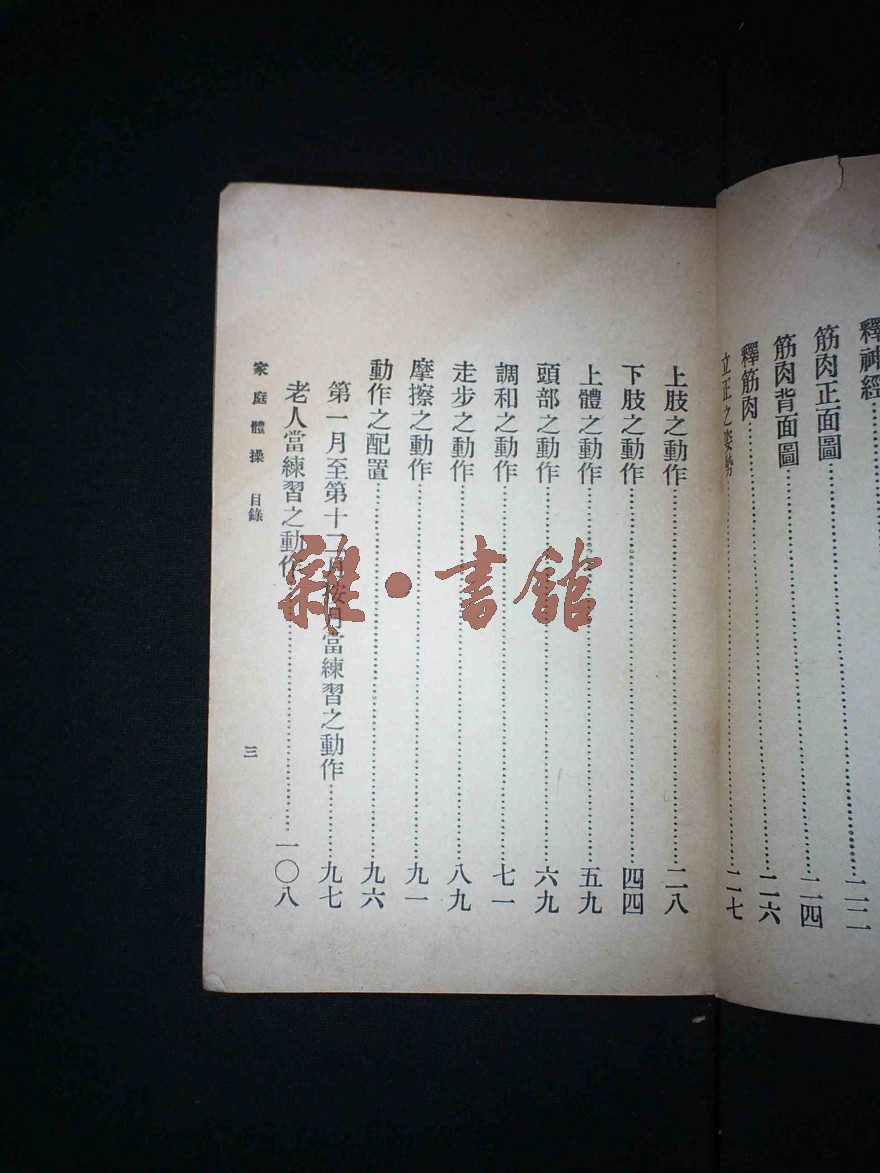 釋神經……二二
筋肉正面圖……二四
筋肉背面圖
釋筋肉……二六
立正之姿勢……二七
上肢之動作……二八
下肢之動作……四四
上體之動作……五九
頭部之動作……六九
調和之動作……七一
走步之動作……八九
摩擦之動作……九一
動作之配置……九六
第一月至第十二月按月當練習之動作……九七
老人當練習之動作……一〇八
家庭體操 目錄
三
雜·書館